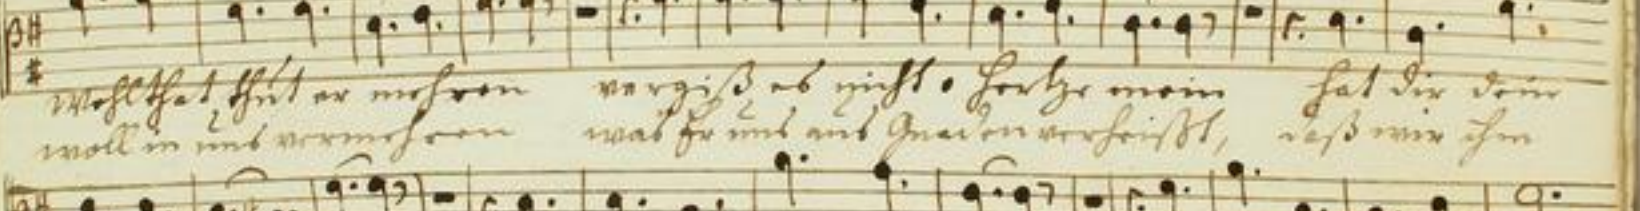 wohlthat thut er mehren vergiß es nicht o hertze mein hat dir dein
woll in uns vermehren was Er uns aus Gnaden verheisst, daß wir ihm